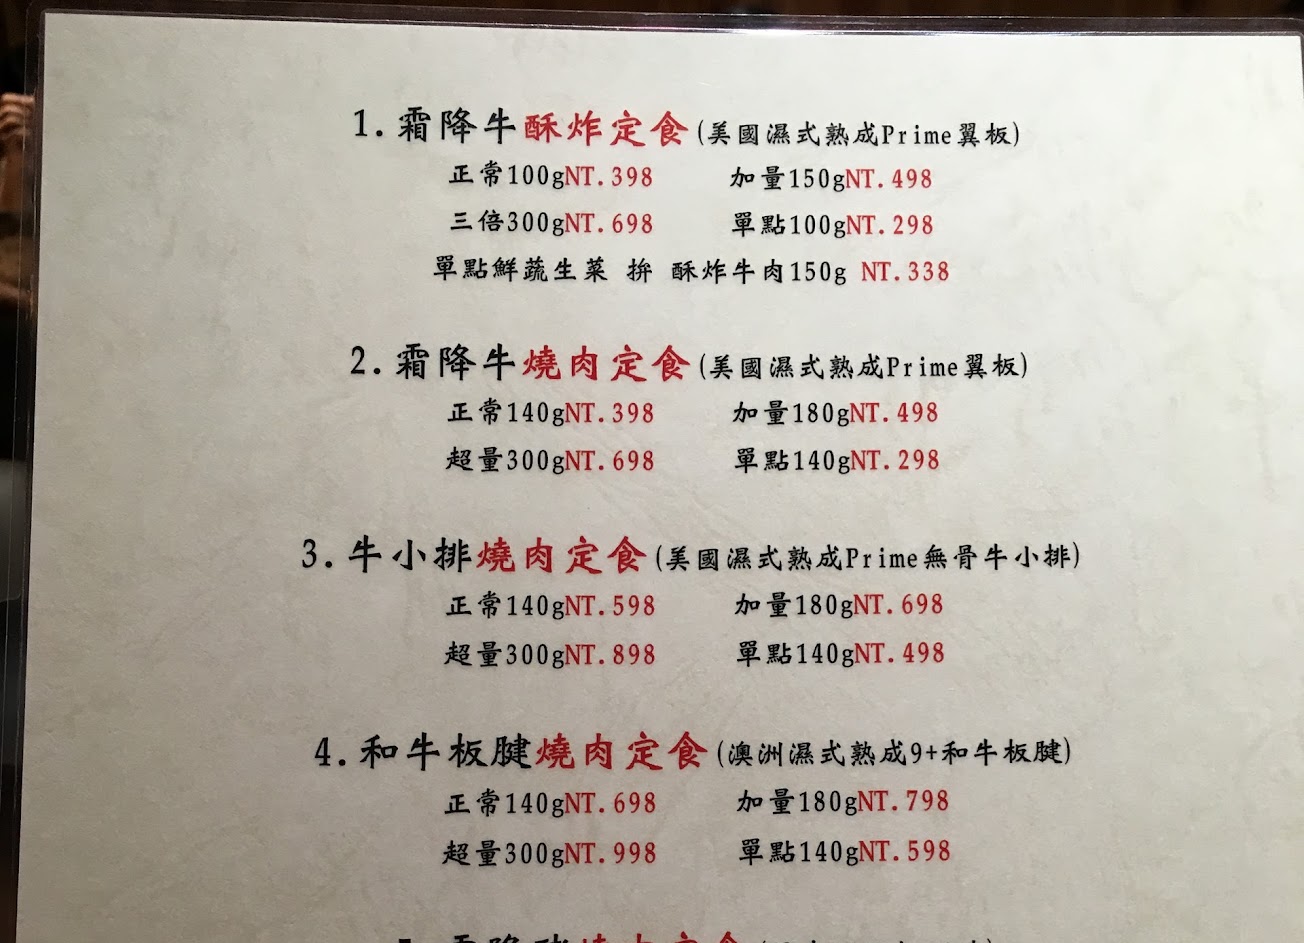 1.霜降牛酥炸定食(美國濕式熟成Prime翼板)
正常100gNT.398 加量150gNT.498
三倍300gNT.698 單點100gNT.298
單點鮮蔬生菜 拚 酥炸牛肉150g NT.338
2.霜降牛燒肉定食(美國濕式熟成Prime翼板)
正常140gNT.398 加量180gNT.498
超量300gNT.698 單點140gNT.298
3.牛小排燒肉定食(美國濕式熟成Prime無骨牛小排)
正常140gNT.598 加量180gNT.698
超量300gNT.898 單點140gNT.498
4.和牛板腱燒肉定食(澳洲濕式熟成9+和牛板腱)
正常140gNT.698 加量180gNT.798
超量300gNT.998 單點140gNT.598